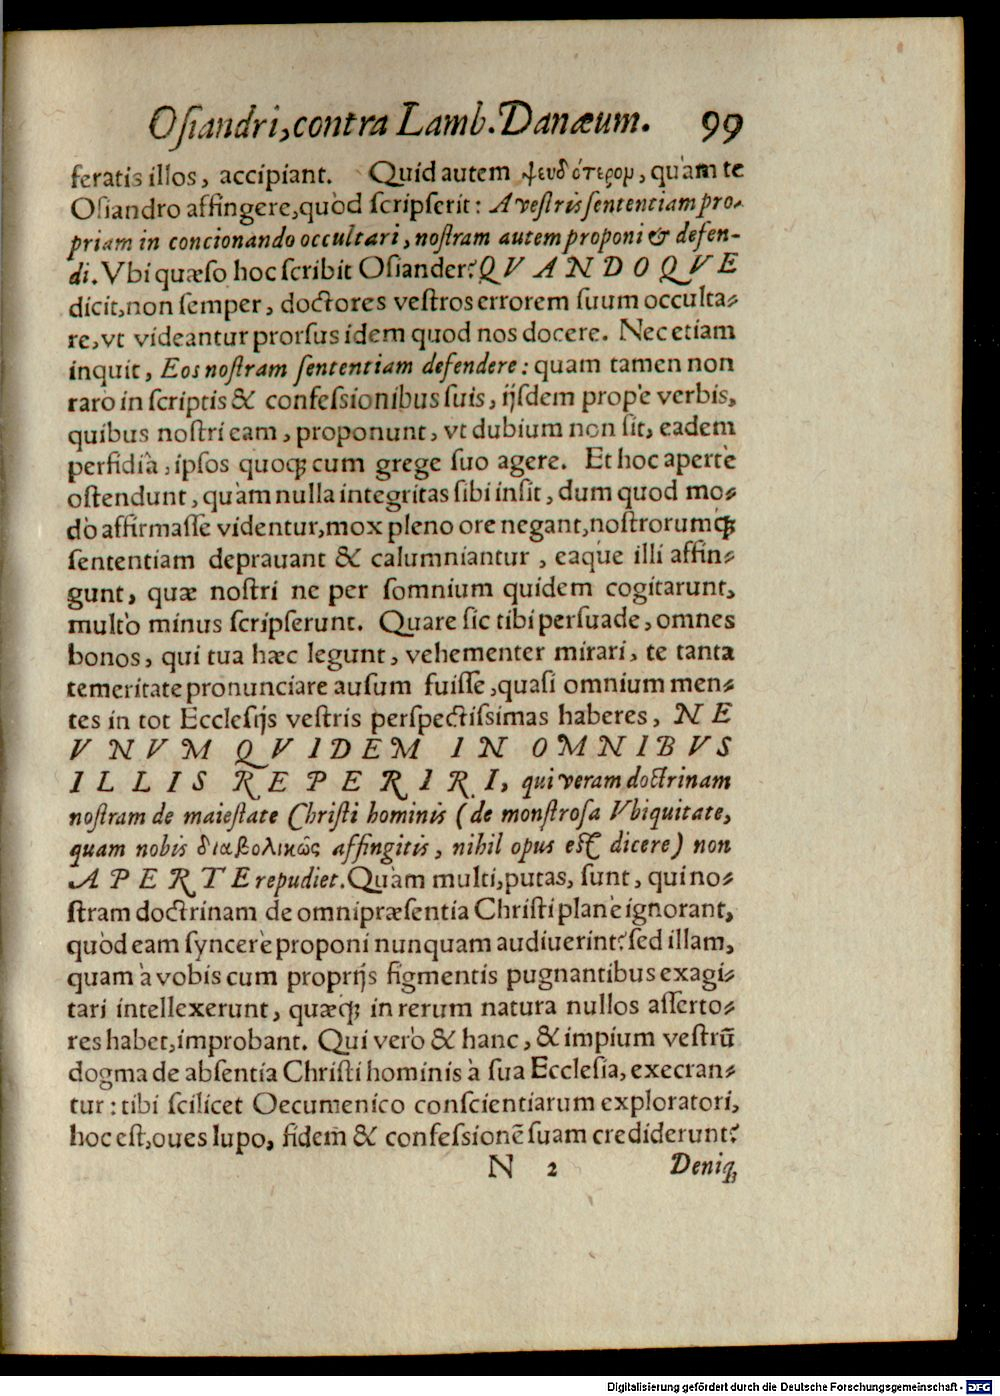 Oſiandri, contra Lamb. Danæum. 99
feratis illos, accipiant. Quid autem ψευδότερομ, quàm te
Oſiandro affingere, quòd ſcripſerit: A veſtris ſententiam pro-
priam in concionando occultari, noſtram autem proponi & defen-
di. Vbi quæſo hoc ſcribit Oſiander? QVANDOQVE
dicit, non ſemper, doctores veſtros errorem ſuum occulta-
re, vt videantur prorſus idem quod nos docere. Nec etiam
inquit, Eos noſtram ſententiam defendere: quam tamen non
rarò in ſcriptis & confeſsionibus ſuis, ijſdem propè verbis,
quibus noſtri eam, proponunt, vt dubium non ſit, eadem
perfidià, ipſos quoqꝫ cum grege ſuo agere. Et hoc apertè
oſtendunt, quàm nulla integritas ſibi inſit, dum quod mo-
dò affirmaſſe videntur, mox pleno ore negant, noſtrorumqꝫ
ſententiam deprauant & calumniantur, eaque illi affin-
gunt, quæ noſtri ne per ſomnium quidem cogitarunt,
multò minus ſcripſerunt. Quare ſic tibi perſuade, omnes
bonos, qui tua hæc legunt, vehementer mirari, te tanta
temeritate pronunciare auſum fuiſſe, quaſi omnium men-
tes in tot Eccleſijs veſtris perſpectiſsimas haberes, NE
VNVM QVIDEM IN OMNIBVS
ILLIS REPERIRI, qui veram doctrinam
noſtram de maieſtate Chriſti hominis (de monſtroſa Vbiquitate,
quam nobis διαβολικῶς affingitis, nihil opus eſt dicere) non
APERTE repudiet. Quàm multi, putas, ſunt, qui no-
ſtram doctrinam de omnipræſentia Chriſti planè ignorant,
quòd eam ſyncerè proponi nunquam audiuerint? ſed illam,
quam à vobis cum proprijs figmentis pugnantibus exagi-
tari intellexerunt, quæqꝫ in rerum natura nullos aſſerto-
res habet, improbant. Qui verò & hanc, & impium veſtrũ
dogma de abſentia Chriſti hominis à ſua Eccleſia, execran-
tur: tibi ſcilicet Oecumenico conſcientiarum exploratori,
hoc eſt, oues lupo, fidem & confeſsionẽ ſuam crediderunt?
N 2 Deniqꝫ
Digitalisierung gefördert durch die Deutsche Forschungsgemeinschaft - DFG